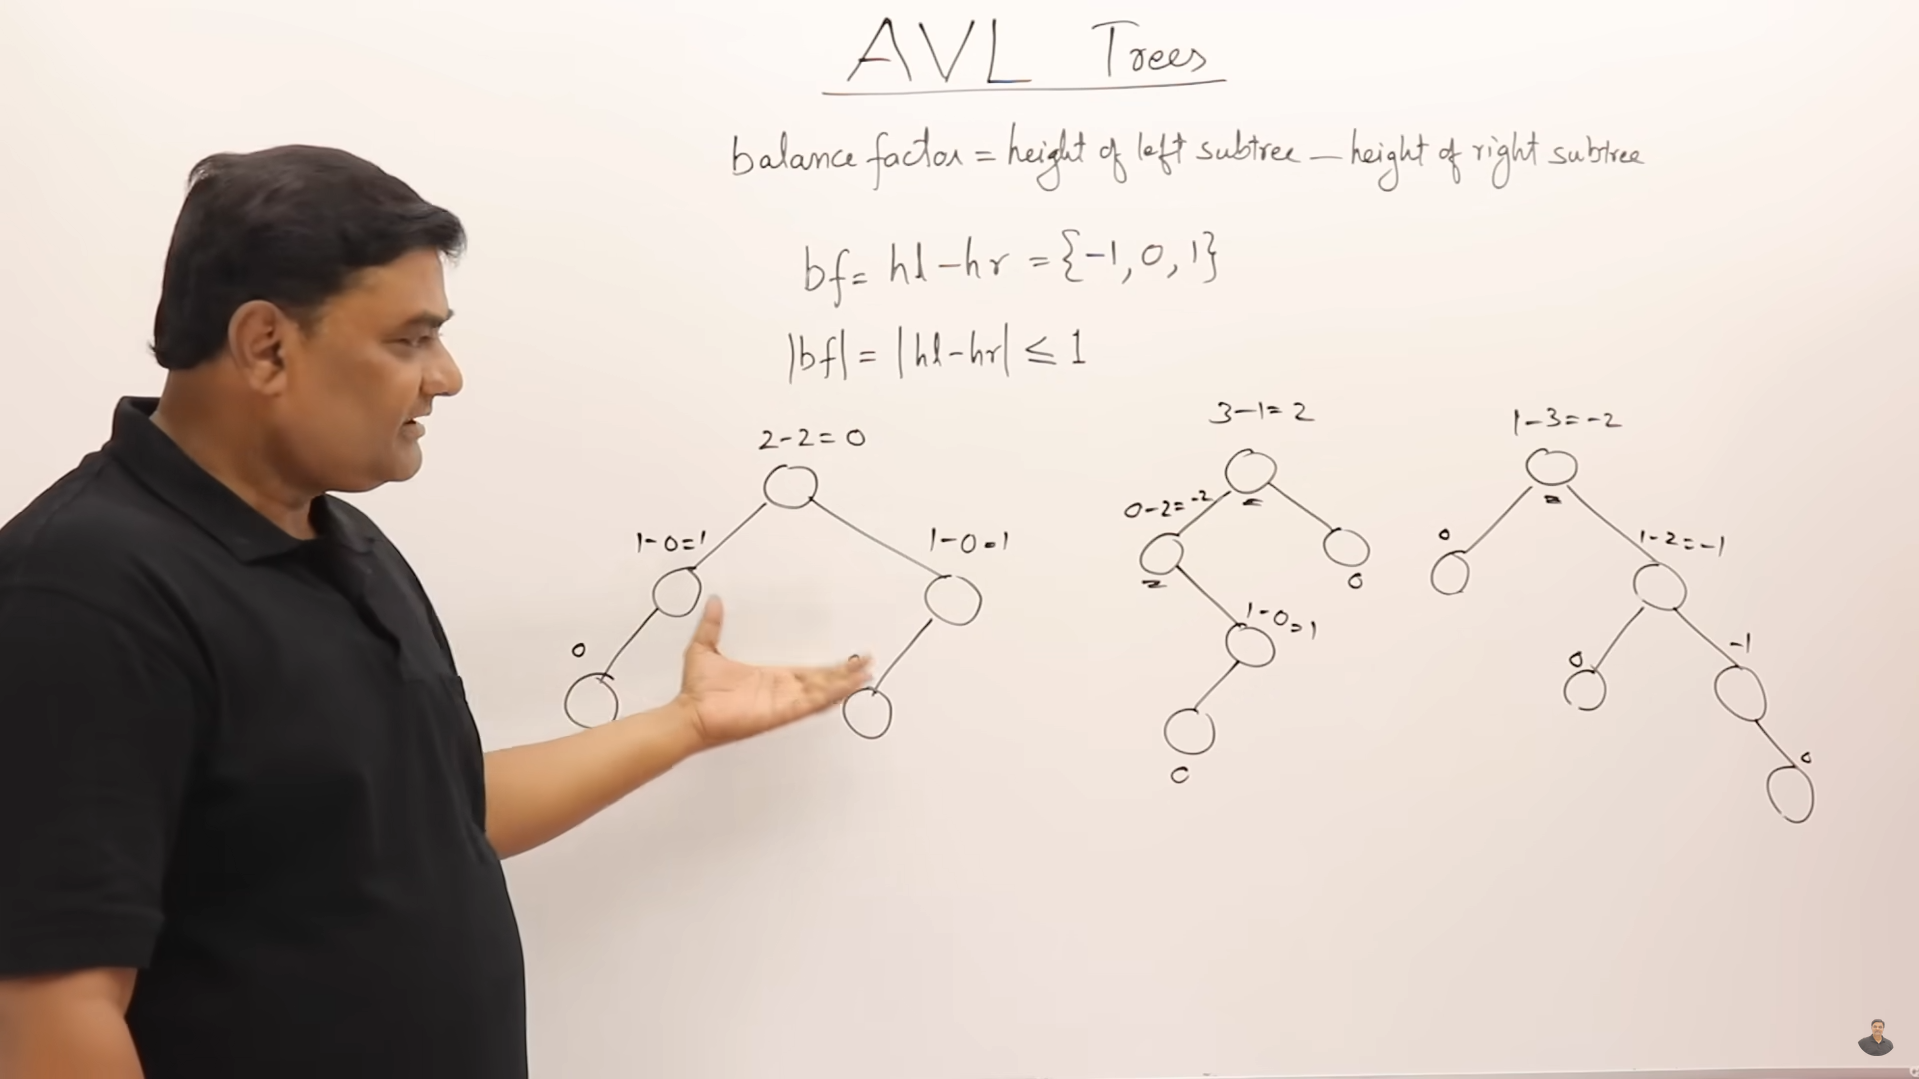 AVL Trees
balance factor = height of left subtree – height of right subtree
bf = hl – hr = {-1, 0, 1}
|bf| = |hl - hr| ≤ 1
2 - 2 = 0
1 - 0 = 1
1 - 0 = 1
0
3 - 1 = 2
0 - 2 = -2
0
1 - 0 = 1
0
1 - 3 = -2
0
1 - 2 = -1
0
-1
0